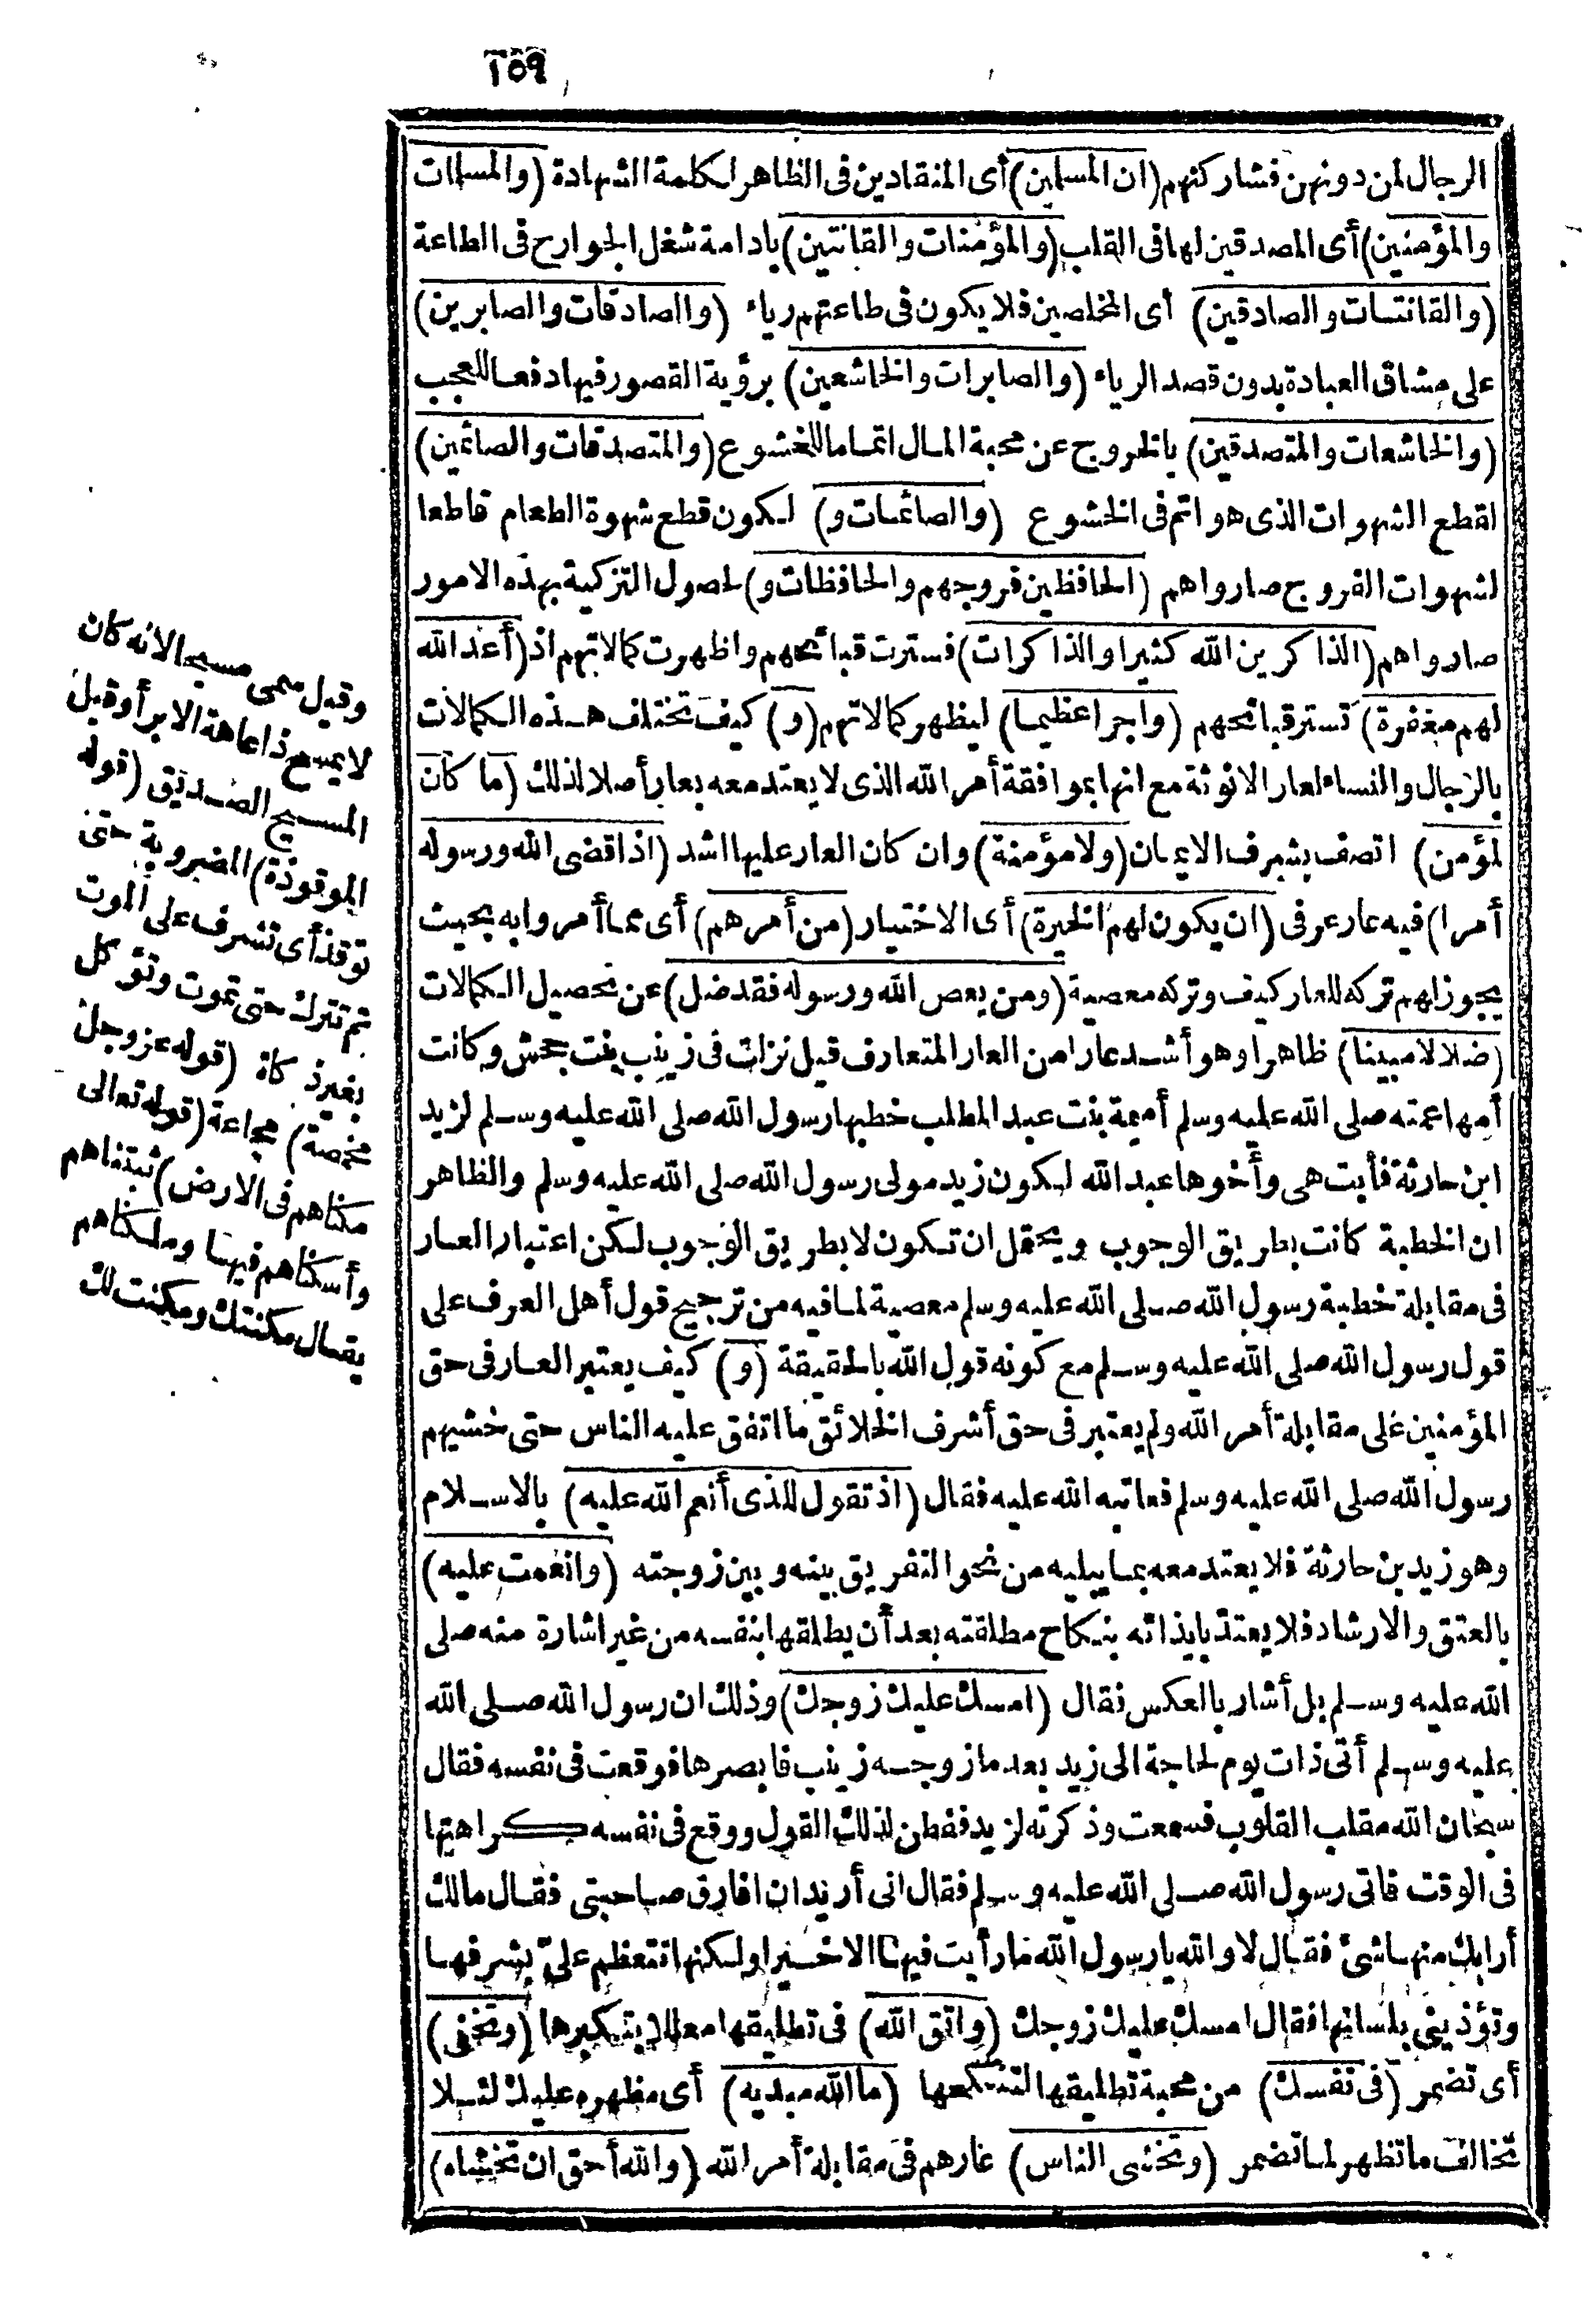 ١٥٩
الرجال لمن دونهن فشاركنهم (ان المسلمين) أى المنقادين فى الظاهر لكلمة الشهادة (والمسلمات
والمؤمنين) أى المصدقين لها فى القلب (والمؤمنات والقانتين) بادامة شغل الجوارح فى الطاعة
(والقانتات والصادقين) أى المخلصين فلا يكون فى طاعتهم رياء (والصادقات والصابرين)
على مشاق العبادة بدون قصد الرياء (والصابرات والخاشعين) برؤية القصور فيها دفعا للعجب
(والخاشعات والمتصدقين) بالخروج عن محبة المال اتماما للخشوع (والمتصدقات والصائمين)
لقطع الشهوات الذى هو اتم فى الخشوع (والصائمات و) لكون قطع شهوة الطعام قاطعا
لشهوات الفروج صاروا هم (الحافظين فروجهم والحافظات و) لحصول التزكية بهذه الامور
صاروا هم (الذاكرين الله كثيرا والذاكرات) فسترت قبائحهم واظهرت كمالاتهم اذ (أعد الله
لهم مغفرة) تستر قبائحهم (واجرا عظيما) ليظهر كمالاتهم (و) كيف تختلف هذه الكمالات
بالرجال والنساء لعار الانوثة مع انها بموافقة أمر الله الذى لا يعتد معه بعار أصلا لذلك (ما كان
لمؤمن) اتصف بشرف الايمان (ولا مؤمنة) وان كان العار عليها اشد (اذا قضى الله ورسوله
أمرا) فيه عار عرفى (ان يكون لهم الخيرة) أى الاختيار (من أمرهم) أى مما أمروا به بحيث
يجوز لهم تركه للعار كيف وتركه معصية (ومن يعص الله ورسوله فقد ضل) عن تحصيل الكمالات
(ضلالا مبينا) ظاهرا وهو أشد عارا من العار المتعارف قيل نزلت فى زينب بنت جحش وكانت
أمها عمته صلى الله عليه وسلم أميمة بنت عبد المطلب خطبها رسول الله صلى الله عليه وسلم لزيد
ابن حارثة فأبت هى وأخوها عبد الله لكون زيد مولى رسول الله صلى الله عليه وسلم والظاهر
ان الخطبة كانت بطريق الوجوب ويحتمل ان تكون لا بطريق الوجوب لكن اعتبار العار
فى مقابلة خطبة رسول الله صلى الله عليه وسلم معصية لما فيه من ترجيح قول أهل العرف على
قول رسول الله صلى الله عليه وسلم مع كونه قول الله بالحقيقة (و) كيف يعتبر العار فى حق
المؤمنين على مقابلة أمر الله ولم يعتبر فى حق أشرف الخلائق ما اتفق عليه الناس حتى خشيهم
رسول الله صلى الله عليه وسلم فعاتبه الله عليه فقال (اذ تقول للذى أنعم الله عليه) بالاسلام
وهو زيد بن حارثة فلا يعتد معه بما يبليه من نحو التفريق بينه وبين زوجته (وانعمت عليه)
بالعتق والارشاد فلا يعتد بايذائه بنكاح مطلقته بعد أن يطلقها بنفسه من غير اشارة منه صلى
الله عليه وسلم بل أشار بالعكس فقال (امسك عليك زوجك) وذلك ان رسول الله صلى الله
عليه وسلم أتى ذات يوم لحاجة الى زيد بعد ما زوجه زينب فابصرها فوقعت فى نفسه فقال
سبحان الله مقلب القلوب فسمعت وذكرته لزيد ففطن لذلك القول ووقع فى نفسه كراهتها
فى الوقت فاتى رسول الله صلى الله عليه وسلم فقال انى أريد ان افارق صاحبتى فقال مالك
أرابك منها شئ فقال لا والله يا رسول الله ما رأيت فيها الا خيرا ولكنها تتعظم علىّ بشرفها
وتؤذينى بلسانها فقال امسك عليك زوجك (واتق الله) فى تطليقها معللا بتكبرها (وتخفى)
أى تضمر (فى نفسك) من محبة تطليقها لتنكحها (ما الله مبديه) أى مظهره عليك لئلا
تخالف ما تظهر لما تضمر (وتخشى الناس) عارهم فى مقابلة أمر الله (والله أحق ان تخشاه)
وقيل سمى مسيحا لانه كان
لا يمسح ذا عاهة الا برأ وقيل
المسيح الصديق (قوله
الموقوذة) المضروبة حتى
توقذ أى تشرف على الموت
ثم تترك حتى تموت وتؤكل
بغير ذكاة (قوله عز وجل
مخمصة) مجاعة (قوله تعالى
مكناهم فى الارض) ثبتناهم
وأسكناهم فيها وملكناهم
يقال مكنتك ومكنت لك